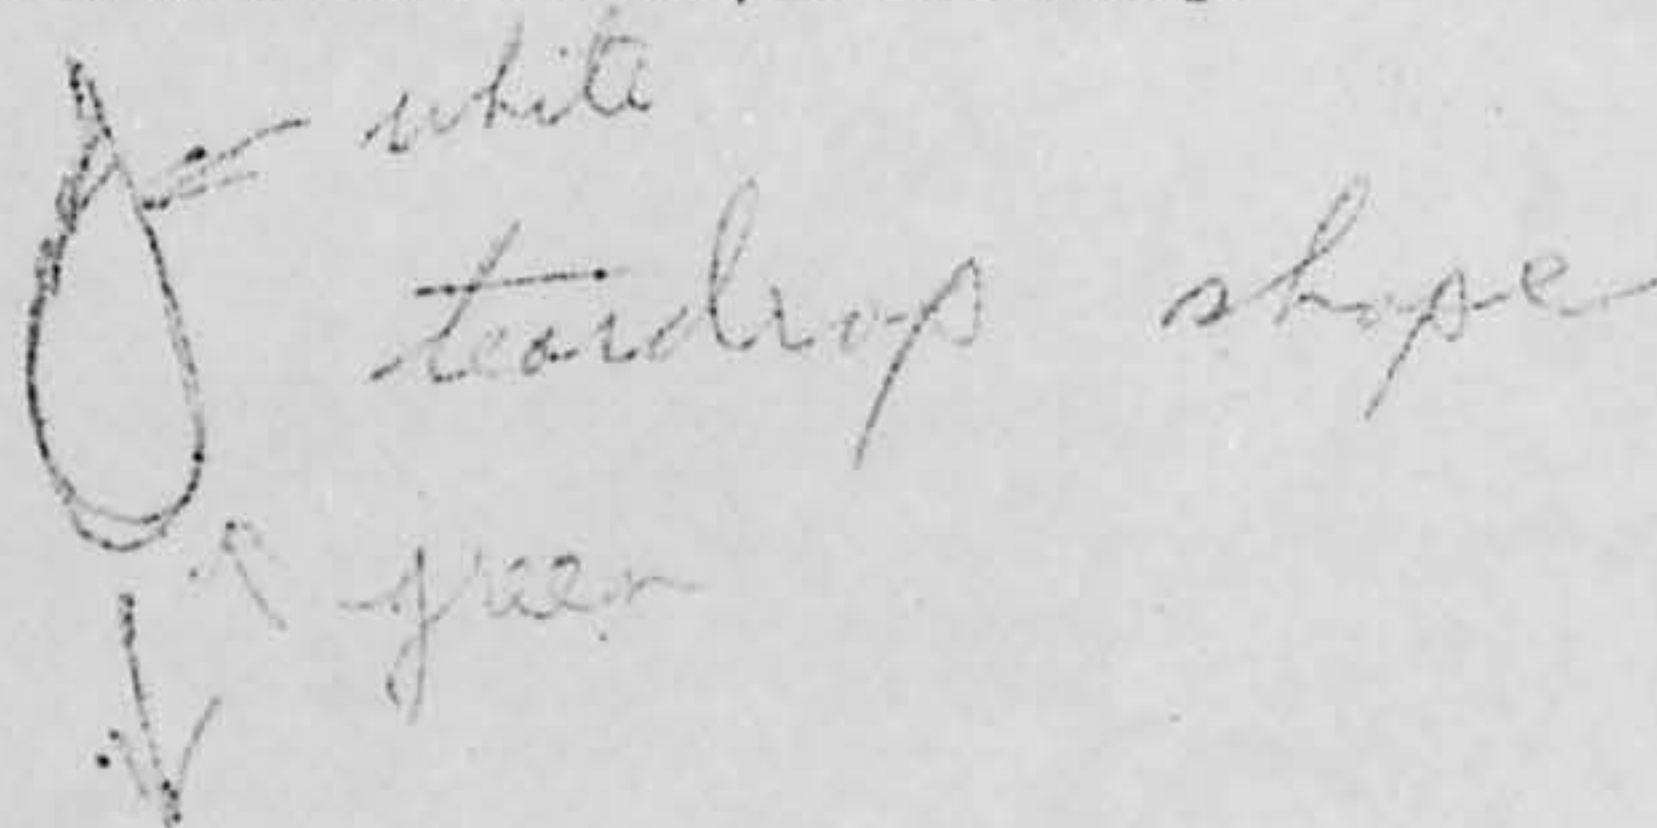 white
teardrop shape
green